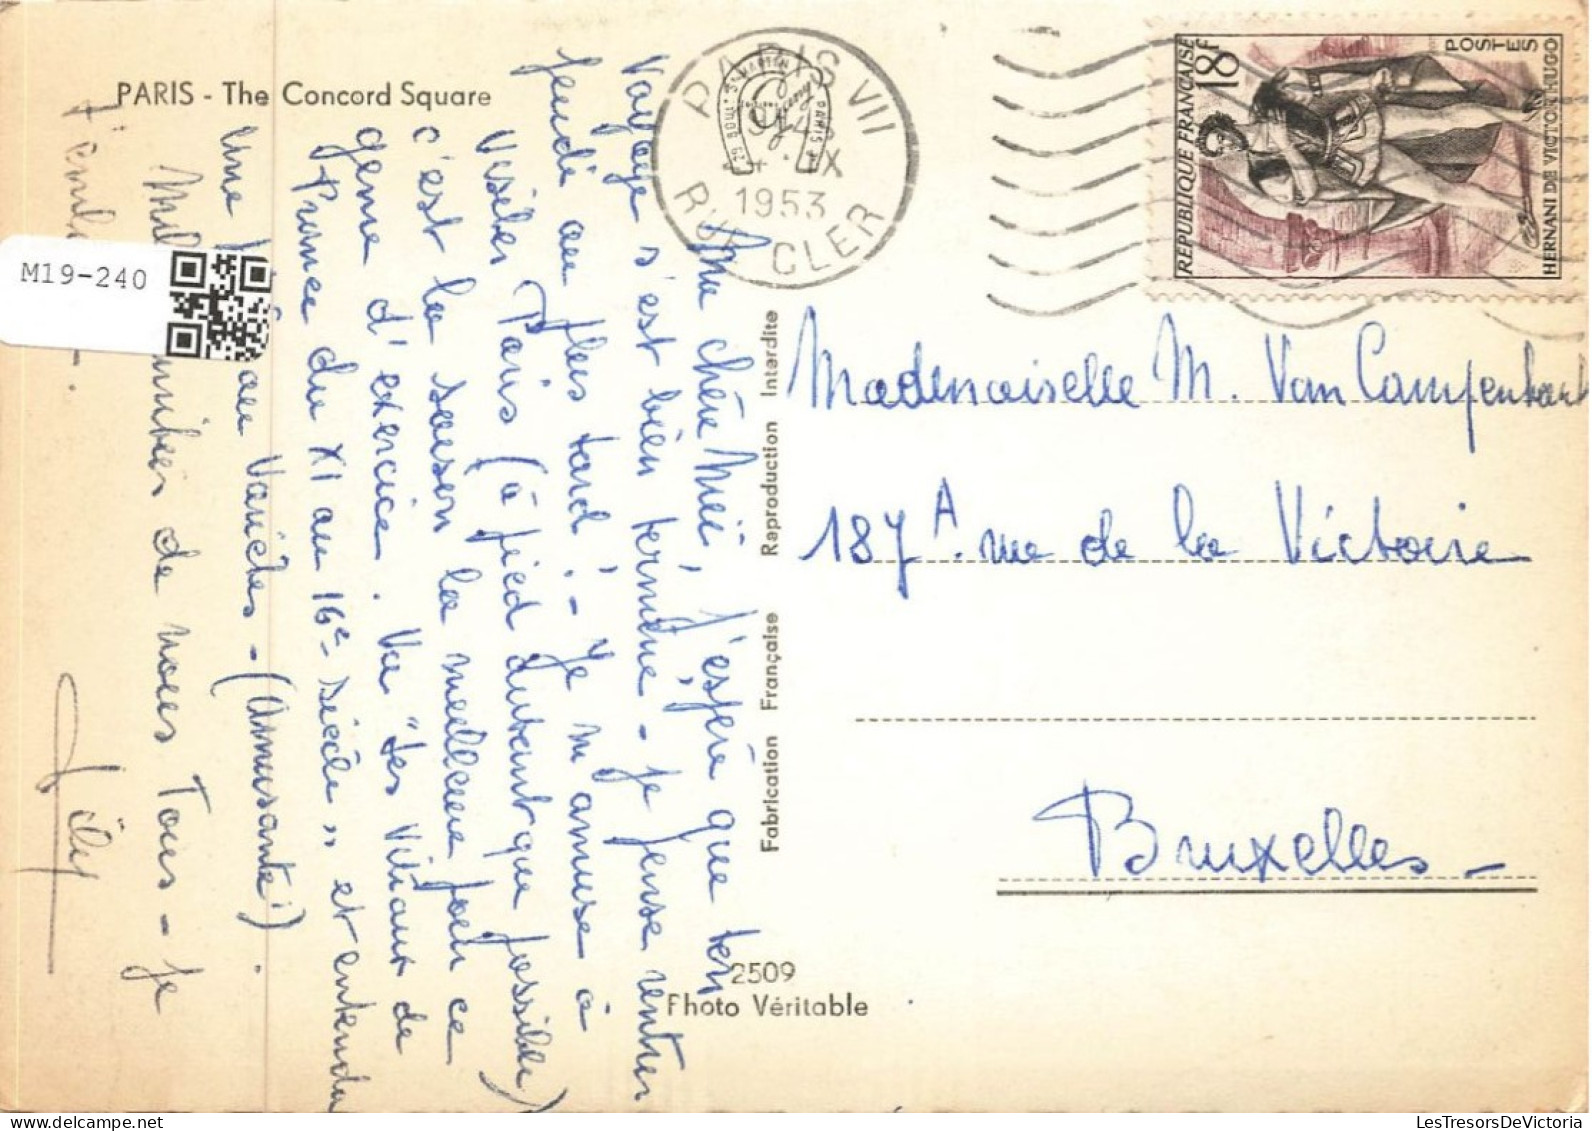 PARIS - The Concord Square
Ma chère Mii, j'espère que ton
voyage s'est bien terminé - je pense rentrer
jeudi au plus tard. - Je m'amuse à
visiter Paris (à pied autant que possible)
c'est la saison la meilleure pour ce
genre d'exercice. Vu "Les Vitraux de
France du XI au 16e siècle" et entendu
une au Variétés - (Amusante!).
de nous Tous - je
t'
M19-240
PARIS VII
29 BOULD ST MARTIN PARIS
1953
RUE CLER
REPUBLIQUE FRANÇAISE
18F
POSTES
HERNANI DE VICTOR HUGO
Mademoiselle M. Van Campenhout
187A. rue de la Victoire
Bruxelles -
Fabrication Française Reproduction Interdite
2509
Photo Véritable
LesTresorsDeVictoria.com